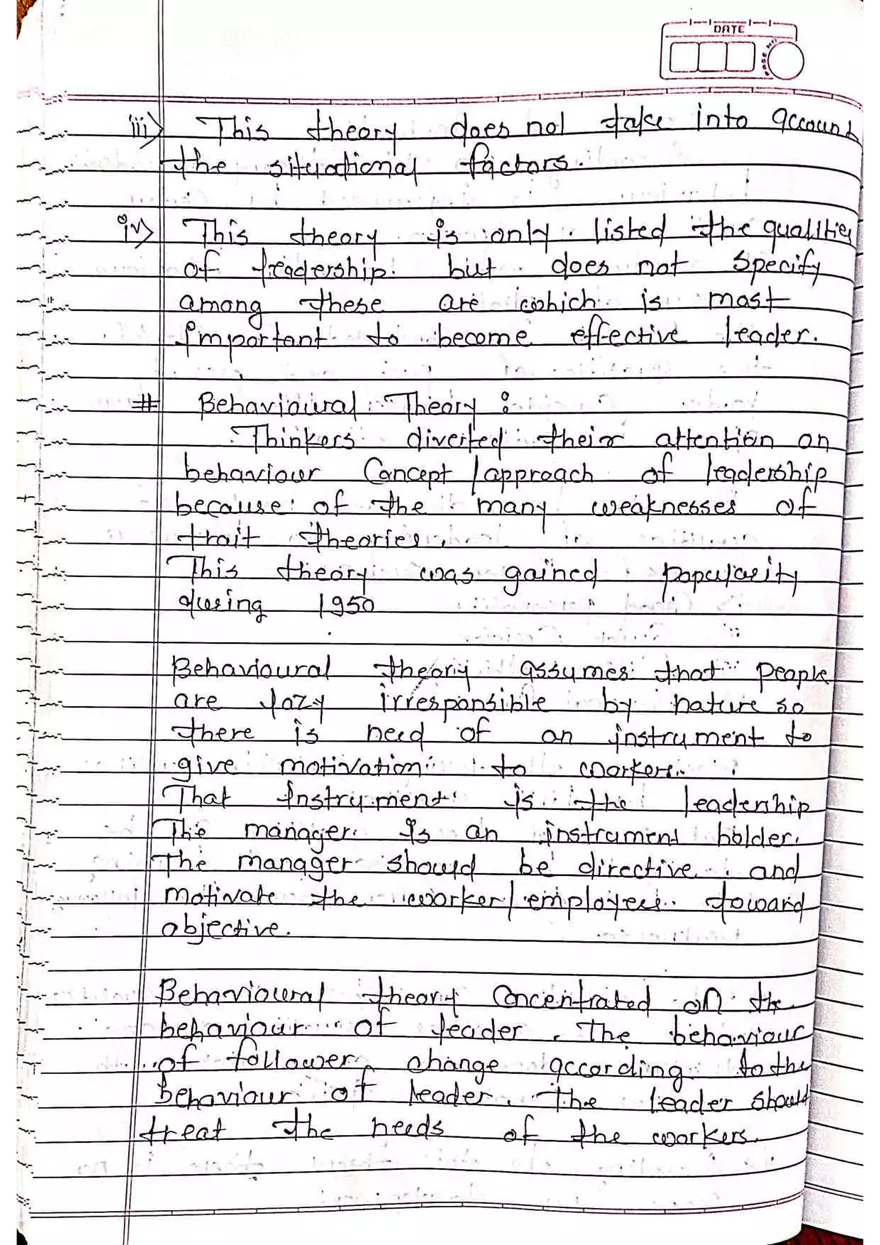 DATE
PAGE NO.
iii) This theory does not take into account
the situational factors.
iv) This theory is only listed the qualities
of leadership but does not specify
among these are which is most
important to become effective leader.
# Behavioural Theory :
Thinkers diverted their attention on
behaviour Concept / approach of leadership
because of the many weaknesses of
trait theories.
This theory was gained popularity
during 1950
Behavioural theory assumes that people
are lazy irresponsible by nature so
there is need of an instrument to
give motivation to workers.
That instrument is the leadership
The manager is an instrument holder.
The manager should be directive and
motivate the worker/employees toward
objective.
Behavioural theory Concentrated on the
behaviour of leader. The behaviour
of follower change according to the
behaviour of leader. The leader should
treat the needs of the workers.